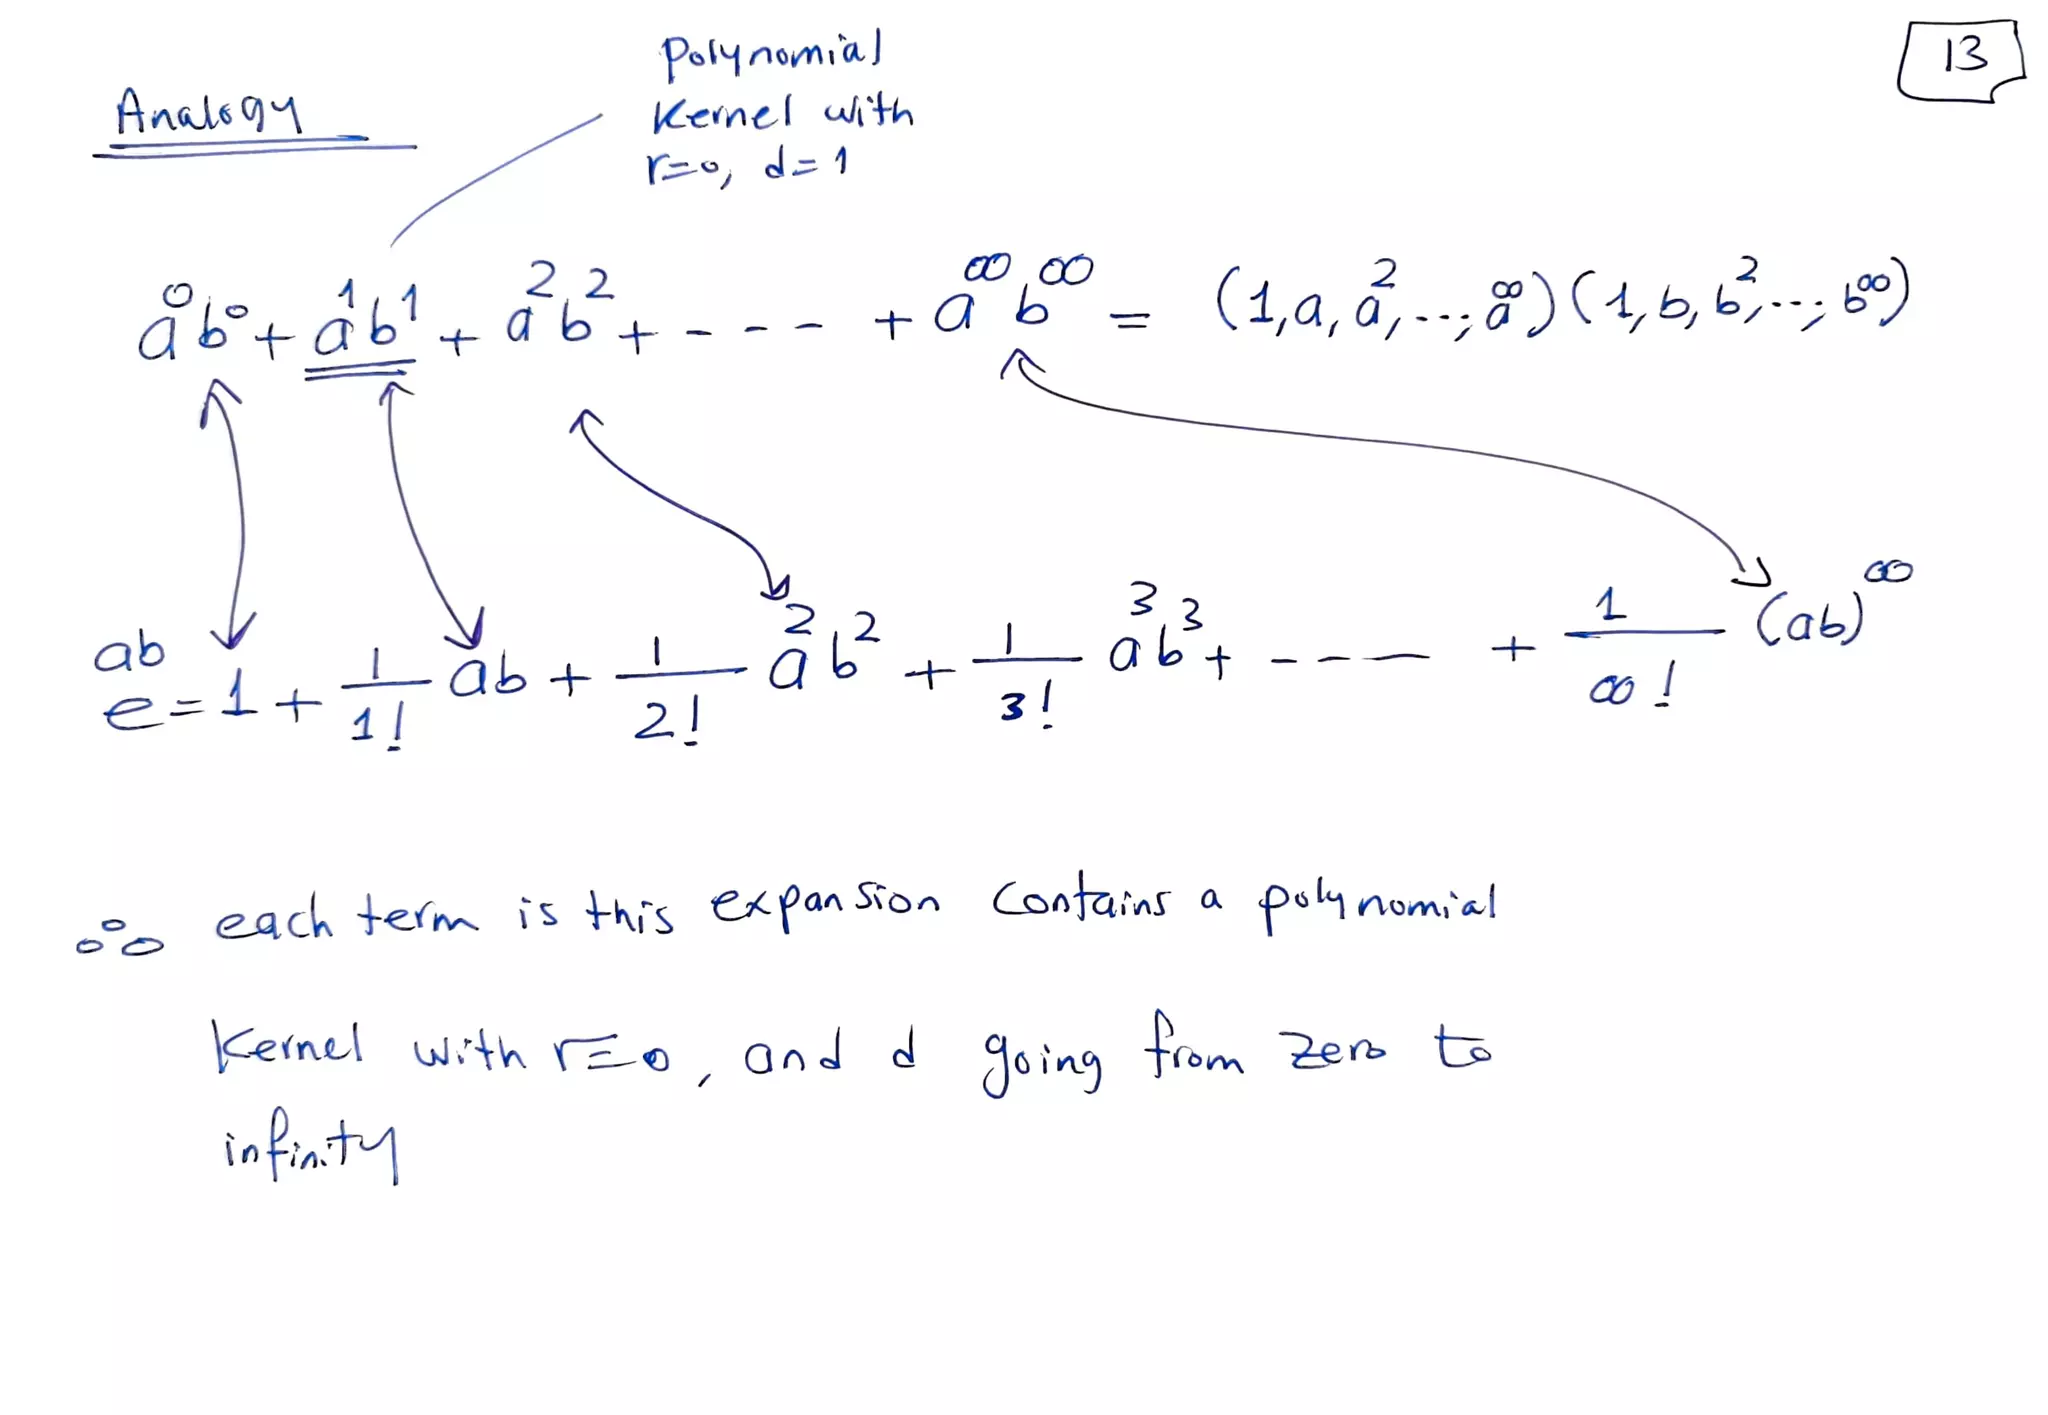 13
Polynomial
Kernel with
r=0, d=1
Analogy
a⁰b⁰ + a¹b¹ + a²b² + - - - - + a^∞ b^∞ = (1, a, a², ..., a^∞)(1, b, b², ..., b^∞)
e^ab = 1 + 1/1! ab + 1/2! a²b² + 1/3! a³b³ + - - - - + 1/∞! (ab)^∞
∴ each term is this expansion contains a polynomial
Kernel with r=0, and d going from zero to
infinity